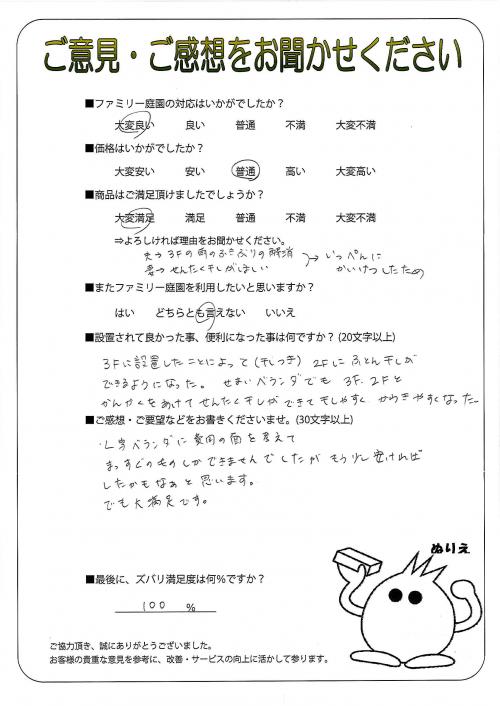 ご意見・ご感想をお聞かせください
■ファミリー庭園の対応はいかがでしたか？
大変良い 良い 普通 不満 大変不満
■価格はいかがでしたか？
大変安い 安い 普通 高い 大変高い
■商品はご満足頂けましたでしょうか？
大変満足 満足 普通 不満 大変不満
⇒よろしければ理由をお聞かせください。
夫→3Fの雨のふきぶりの解消
妻→せんたく干しがほしい
→いっぺんに
かいけつしたため
■またファミリー庭園を利用したいと思いますか？
はい どちらとも言えない いいえ
■設置されて良かった事、便利になった事は何ですか？(20文字以上)
3Fに設置したことによって(干しつき) 2Fにふとん干しが
できるようになった。 せまいベランダでも 3F.2Fと
かんかくをあけてせんたく干しができて干しやすく かわきやすくなった
■ご感想・ご要望などをお書きくださいませ。(30文字以上)
・L字ベランダに費用の面を考えて
まっすぐのものしかできませんでしたが もう少し安ければ
したかもなぁと思います。
でも大満足です。
ぬりえ
■最後に、ズバリ満足度は何%ですか？
100 %
ご協力頂き、誠にありがとうございました。
お客様の貴重な意見を参考に、改善・サービスの向上に活かして参ります。